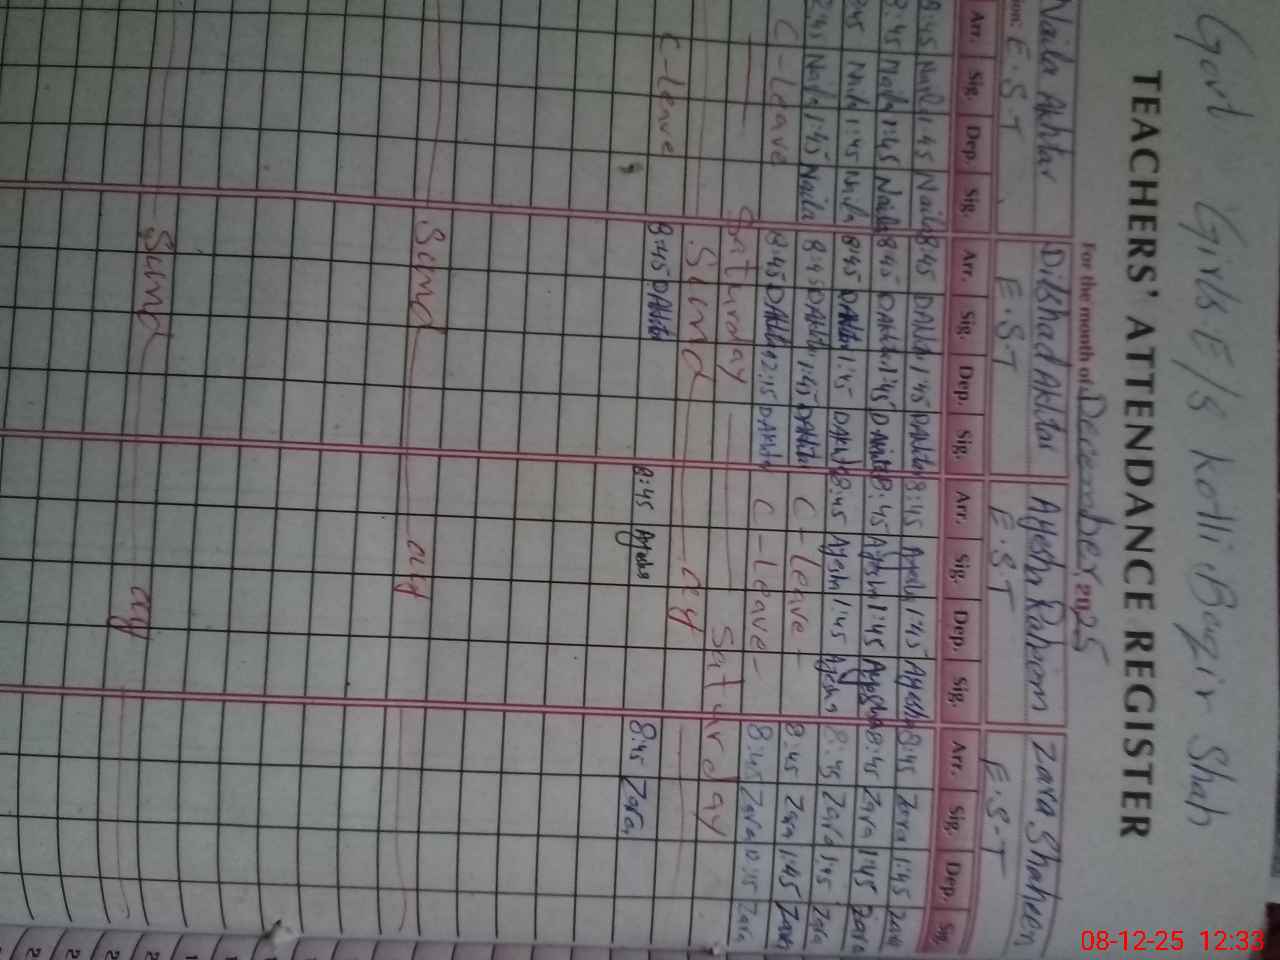 Govt Girls E/S Kotli Baqir Shah
TEACHERS' ATTENDANCE REGISTER
For the month of December, 2025
Naila Akhtar Dilshad Akhtar Ayesha Raheem Zara Shaheen
E.S.T E.S.T E.S.T E.S.T
Arr. Sig. Dep. Sig. Arr. Sig. Dep. Sig. Arr. Sig. Dep. Sig. Arr. Sig. Dep. Sig.
8:45 Naila 1:45 Naila 8:45 DAkhtar 1:45 DAkhtar 8:45 Ayesha 1:45 Ayesha 8:45 Zara 1:45 Zara
8:45 Naila 1:45 Naila 8:45 DAkhtar 1:45 DAkhtar 8:45 Ayesha 1:45 Ayesha 8:45 Zara 1:45 Zara
8:45 Naila 1:45 Naila 8:45 DAkhtar 1:45 DAkhtar 8:45 Ayesha 1:45 Ayesha 8:45 Zara 1:45 Zara
8:45 Naila 1:45 Naila 8:45 DAkhtar 1:45 DAkhtar C-leave 8:45 Zara 1:45 Zara
C-Leave 8:45 DAkhtar 12:15 DAkhtar C-Leave 8:45 Zara Zara
Saturday Saturday
Sund ay
C-leave 8:45 DAkhtar 8:45 Ayesha 8:45 Zara
Sund ay
Sund ay
08-12-25 12:33